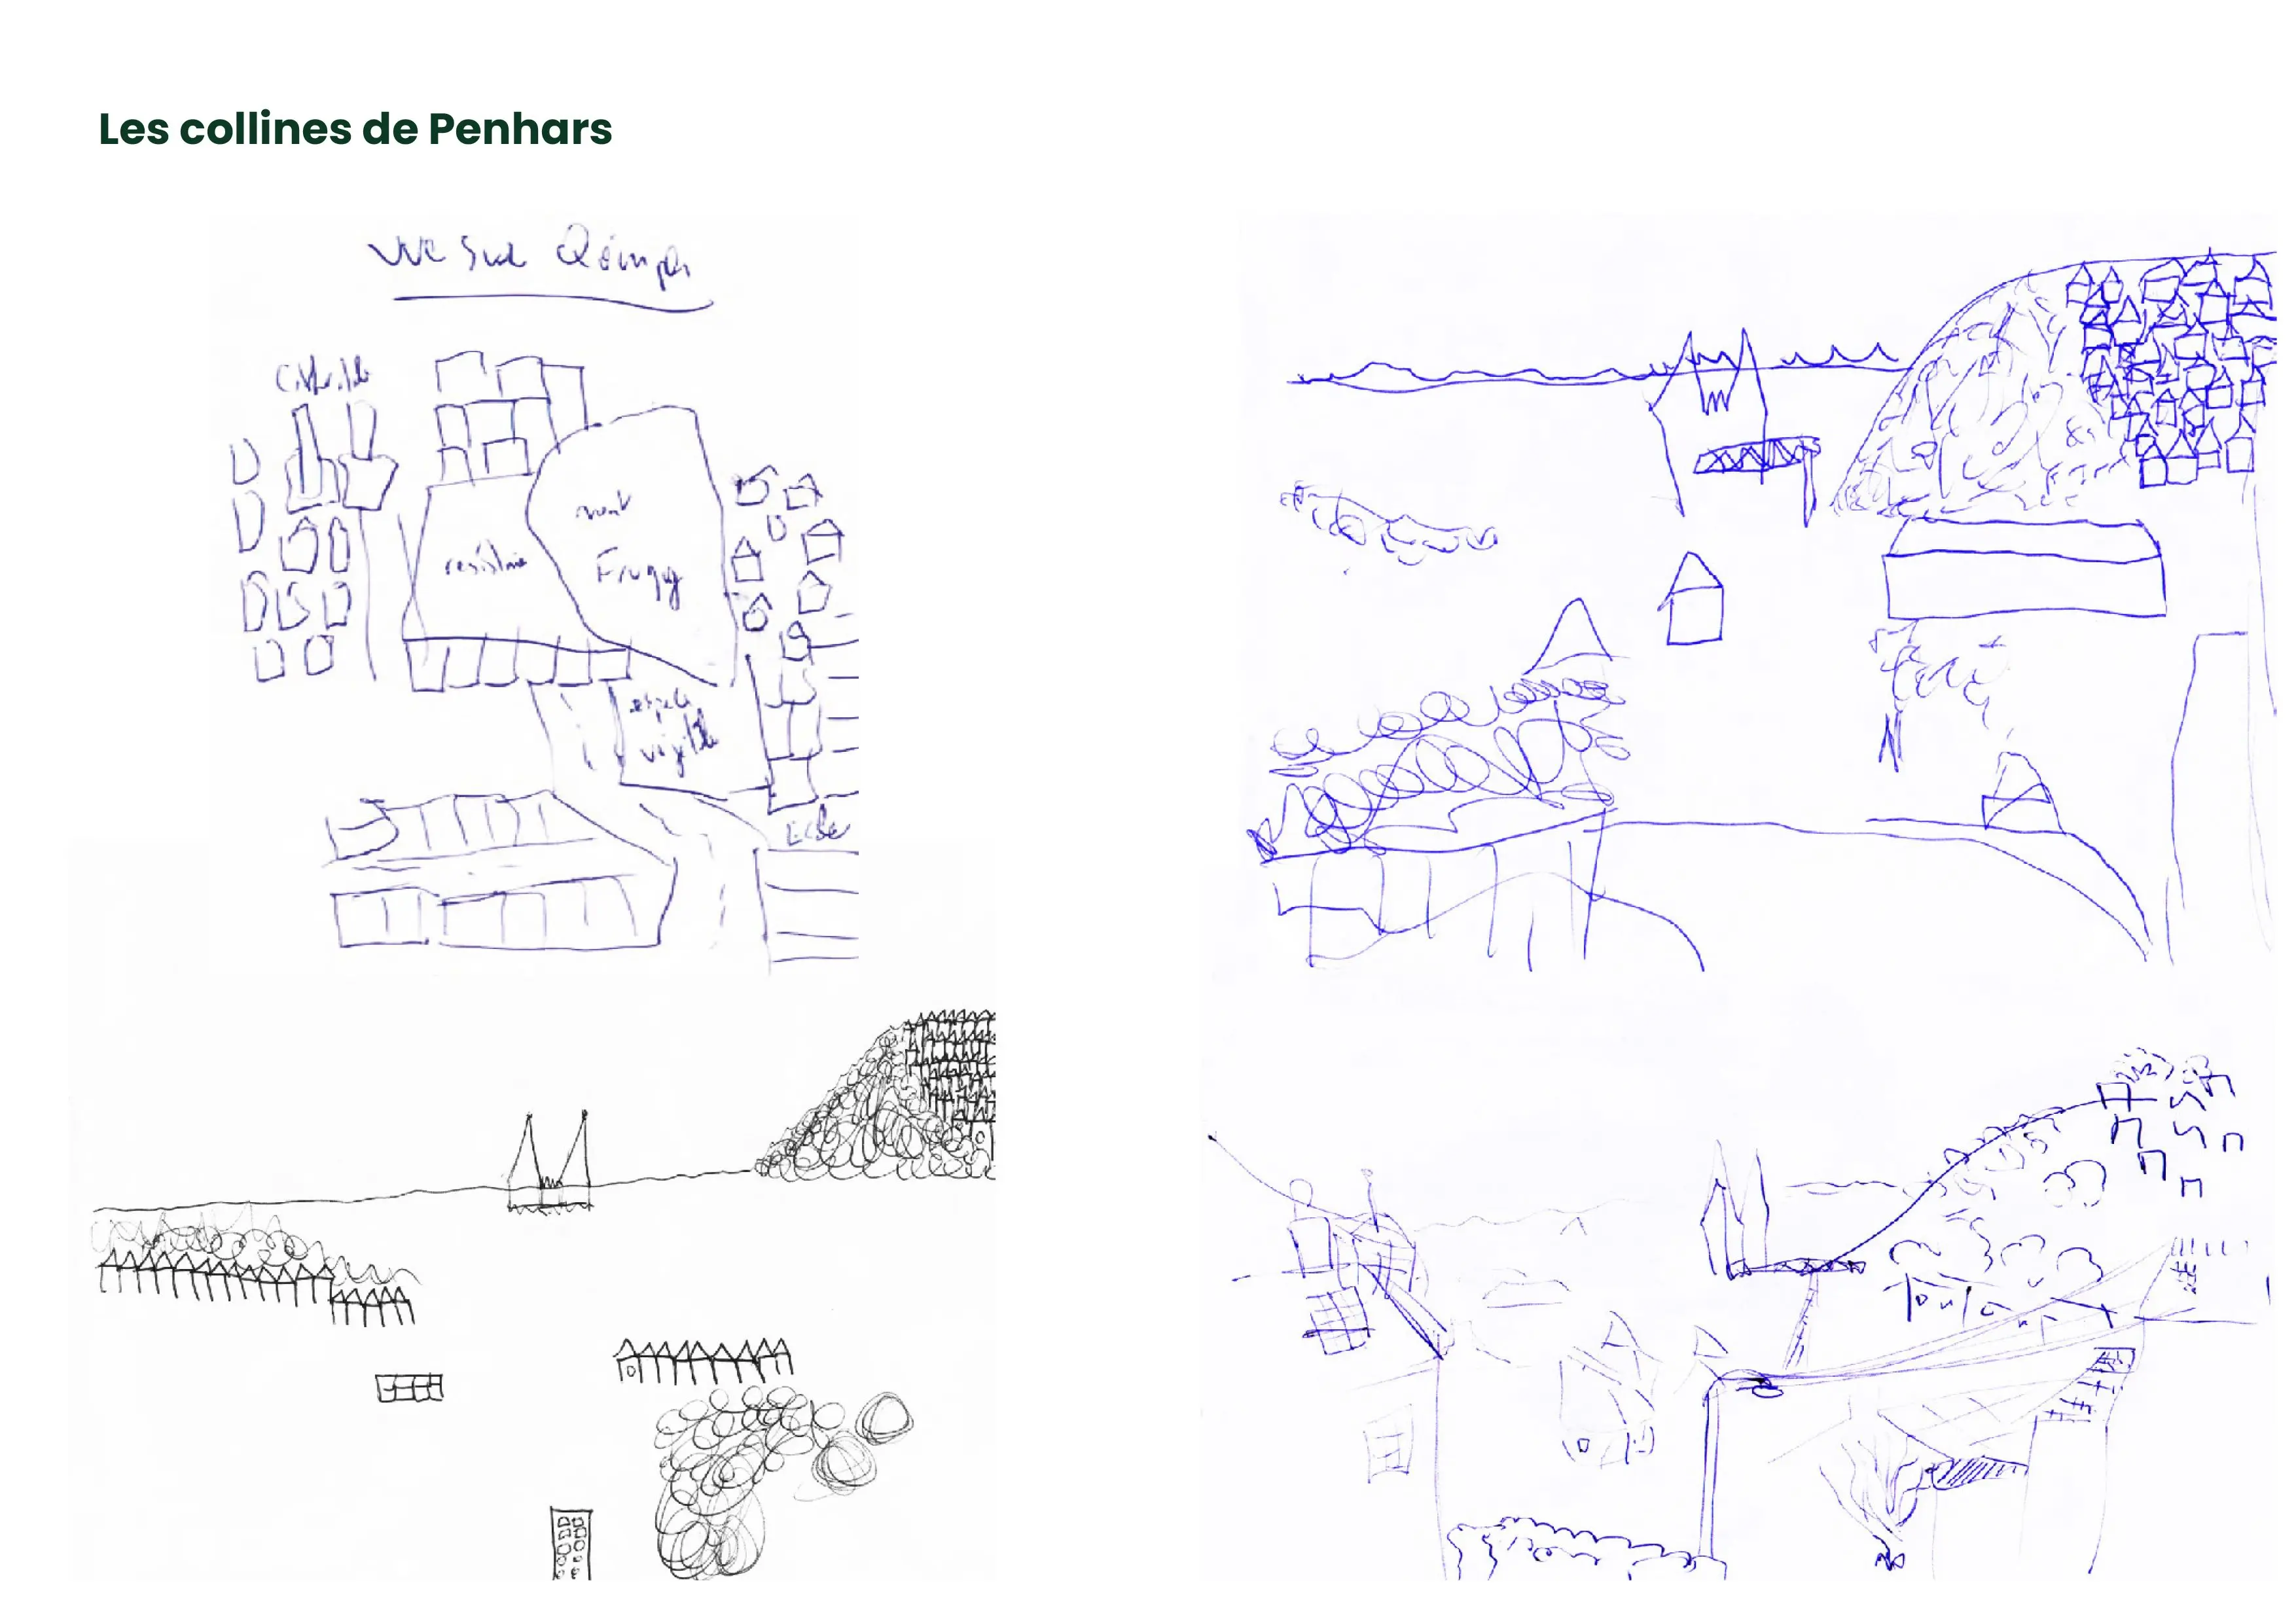 Les collines de Penhars
vue sur Quimper
Cathédrale
mont
Frugy
espace
végétale